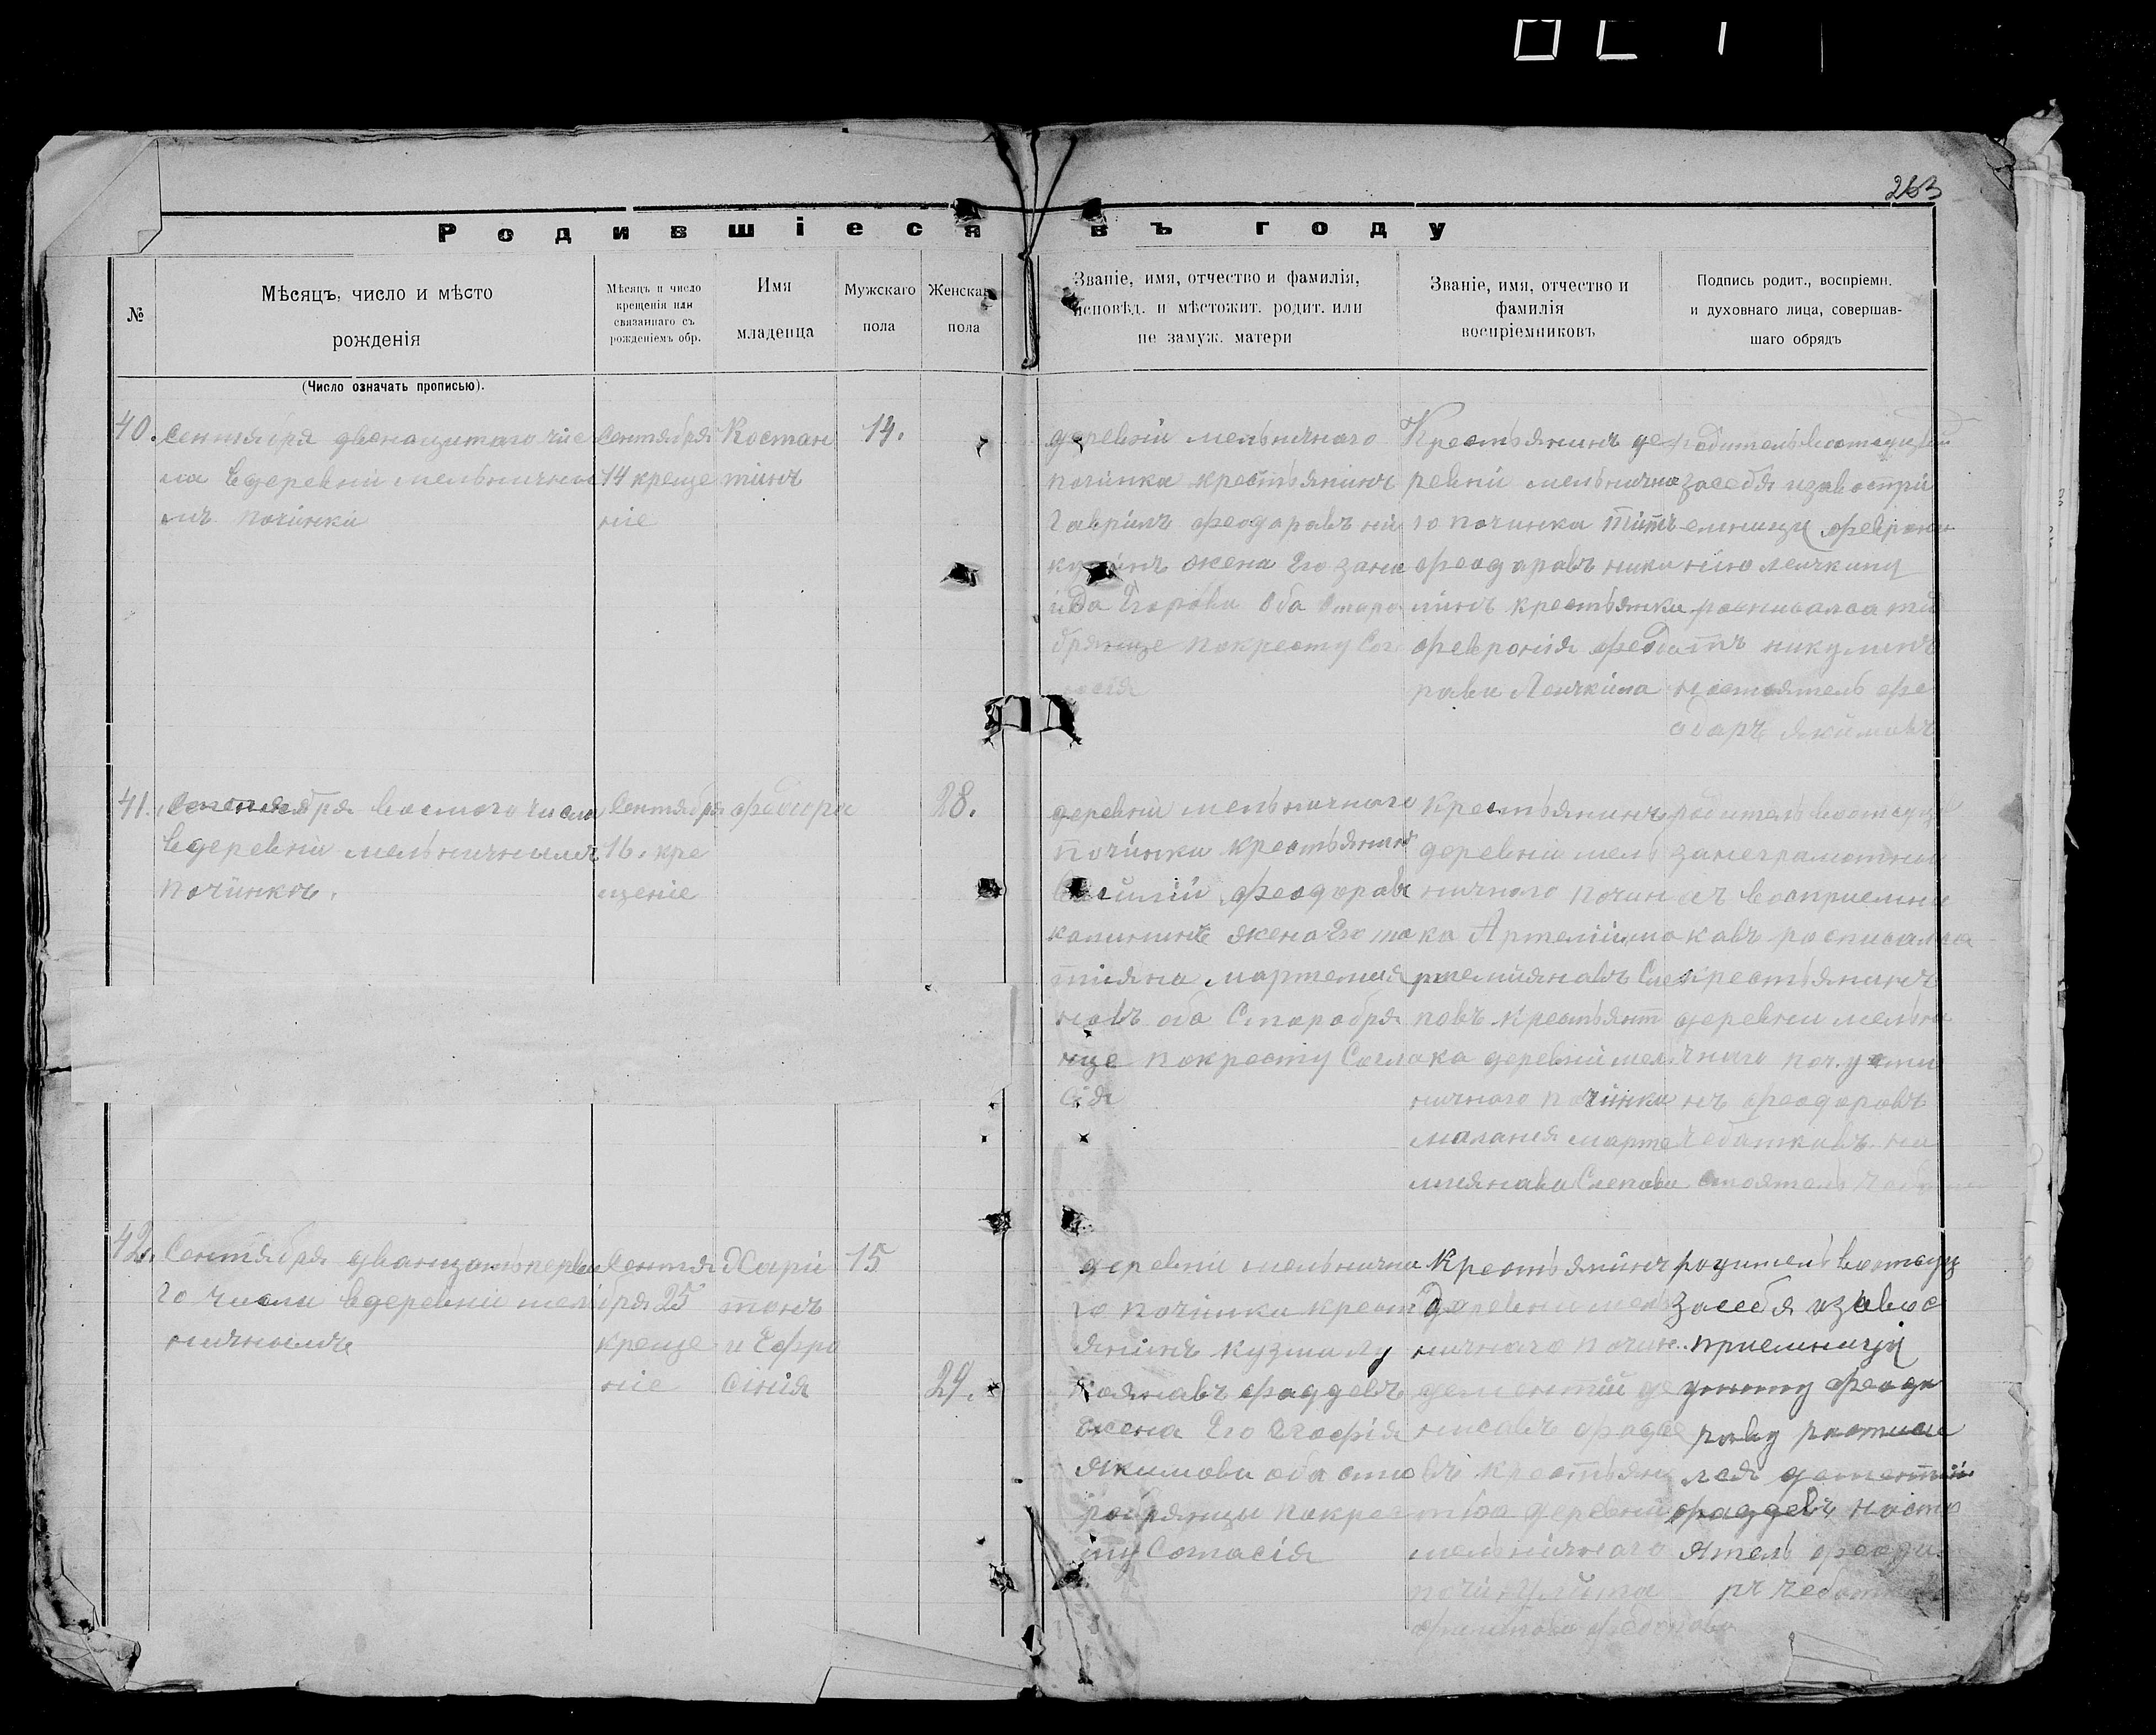 263
Родившіеся въ году
№
Мѣсяцъ, число и мѣсто
рожденія
(Число означать прописью).
Мѣсяцъ и число
крещенія или
связаннаго съ
рожденіемъ обр.
Имя
младенца
Мужскаго
пола
Женскаг
пола
Званіе, имя, отчество и фамилія,
исповѣд. и мѣстожит. родит. или
не замуж. матери
Званіе, имя, отчество и
фамилія
воспріемниковъ
Подпись родит., воспріемн.
и духовнаго лица, совершав-
шаго обрядъ
40.
сентября двенацитаго чис
ла вдеревніи мельничны
мъ починки
Сентября
14 креще
ніе
Костан
тинъ
14.
деревніи мельничного
починка крестьянинъ
Гаврилъ феодаравъ ни
жена Его зана
ида Егорова оба Старо
брянце покресту Сог
ласія
Крестьянинъ де
ревніи мельнично
го починка Титъ
феодаравъ нику
линъ крестьянка
феврония федо
рава Ленчкина
родитель
засебя изавоспри
емницу февронию
ленчкину
росписалса ти
тъ никулинъ
настоятель фе
одаръ якимавъ
41.
Сентября восмого числа
вдеревніи мельничнымъ
починкъ.
Сентября
16. кре
щеніе
федора
28.
деревніи мельничного
починка крестьянинъ
Василій феодоравъ
калининъ жена Его та
тияна мартемия
навъ оба Старобря
нце покресту Согла
Сія
Крестьянинъ
деревніи мель
ничного почин
ка Артеміи ма
ртемиянавъ Сле
повъ крестьянт
ка деревніи мел
ничного починка
маланя марте
миянава Слепова
родитель
занеграмотны
хъ восприемни
кавъ росписалса
крестьянинъ
деревни мельни
чного поч. усти
нъ феодоровъ
чебаткавъ на
стоятель
42.
Сентября дванцатьперва
го числа вдеревніе мел
ничнымъ
Сентя
бря 25
креще
ніе
Хари
тонъ
и Ефро
синія
15
29.
деревніе мельнична
го починка крест
янинъ кузма лу
кояновъ фаддевъ
жена Его Агафія
якимова оба ста
робрянцы покрес
ту Согласія
Крестьянинъ
Деревни мель
ничного почин
дементій де
нисавъ фадде
въ крестьян
ка деревни
мельничного
родитель
засебя изавос
приемницу
улиту феодо
раву росписа
лся дементій
фаддевъ насто
ятель феода
ръ